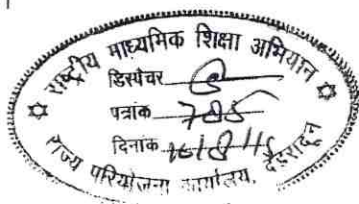 राष्ट्रीय माध्यमिक शिक्षा अभियान
डिस्पैचर
पत्रांक
दिनांक
राज्य परियोजना कार्यालय, देहरादून